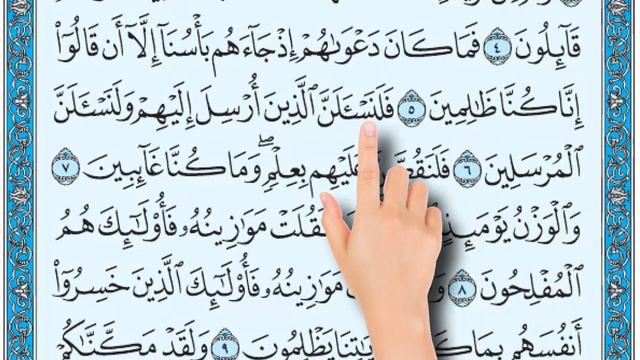 قَآئِلُونَ ٤ فَمَا كَانَ دَعْوَىٰهُمْ إِذْ جَآءَهُم بَأْسُنَآ إِلَّآ أَن قَالُوٓا۟
إِنَّا كُنَّا ظَـٰلِمِينَ ٥ فَلَنَسْـَٔلَنَّ ٱلَّذِينَ أُرْسِلَ إِلَيْهِمْ وَلَنَسْـَٔلَنَّ
ٱلْمُرْسَلِينَ ٦ عَلَيْهِم بِعِلْمٍ ۖ وَمَا كُنَّا غَآئِبِينَ ٧
وَٱلْوَزْنُ مَوَٰزِينُهُۥ فَأُو۟لَـٰٓئِكَ هُمُ
ٱلْمُفْلِحُونَ ٨ مَوَٰزِينُهُۥ فَأُو۟لَـٰٓئِكَ ٱلَّذِينَ خَسِرُوٓا۟
أَنفُسَهُم بِمَا يَظْلِمُونَ ٩ وَلَقَدْ مَكَّنَّـٰكُمْ